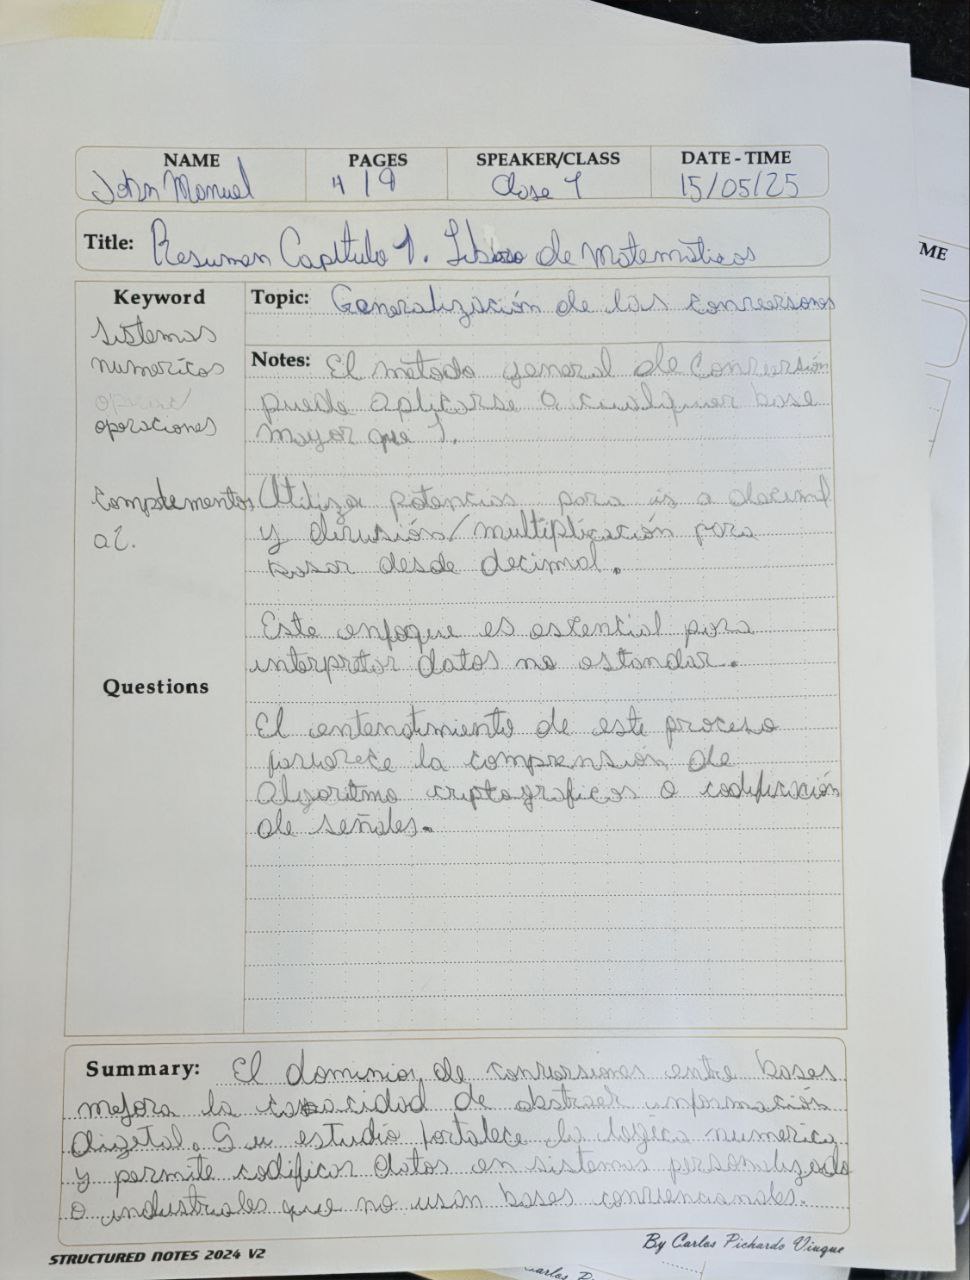 NAME PAGES SPEAKER/CLASS DATE - TIME
John Manuel 4 / 9 Clase 1 15/05/25
ME
Title: Resumen Capítulo 1. Libro de Matemáticas
Keyword
sistemas
numericos
operaciones
complementos
a2.
Questions
Topic: Generalización de las conversiones
Notes: El método general de Conversión
puede aplicarse a cualquier base
mayor que 1.
Utiliza potencias para ir a decimal
y división/multiplicación para
pasar desde decimal.
Este enfoque es esencial para
interpretar datos no estandar.
El entendimiento de este proceso
favorece la comprensión de
Algoritmo criptograficos o codificación
de señales.
Summary: El dominio de conversiones entre bases
mejora la capacidad de abstraer información
digetal. Su estudio fortalece la lógica numerica
y permite codificar datos en sistemas personalizado
o industriales que no usan bases convencionales.
STRUCTURED NOTES 2024 V2
By Carlos Pichardo Viuque
Carlos P